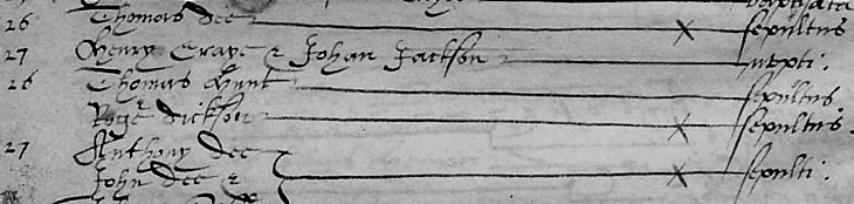 26 Thomas Dee sepultus
27 Henry Crave & Johan Jackson nupti.
26 Thomas Hunt sepultus
Roger Dickson sepultus.
27 Anthony Dee
John Dee & sepulti.